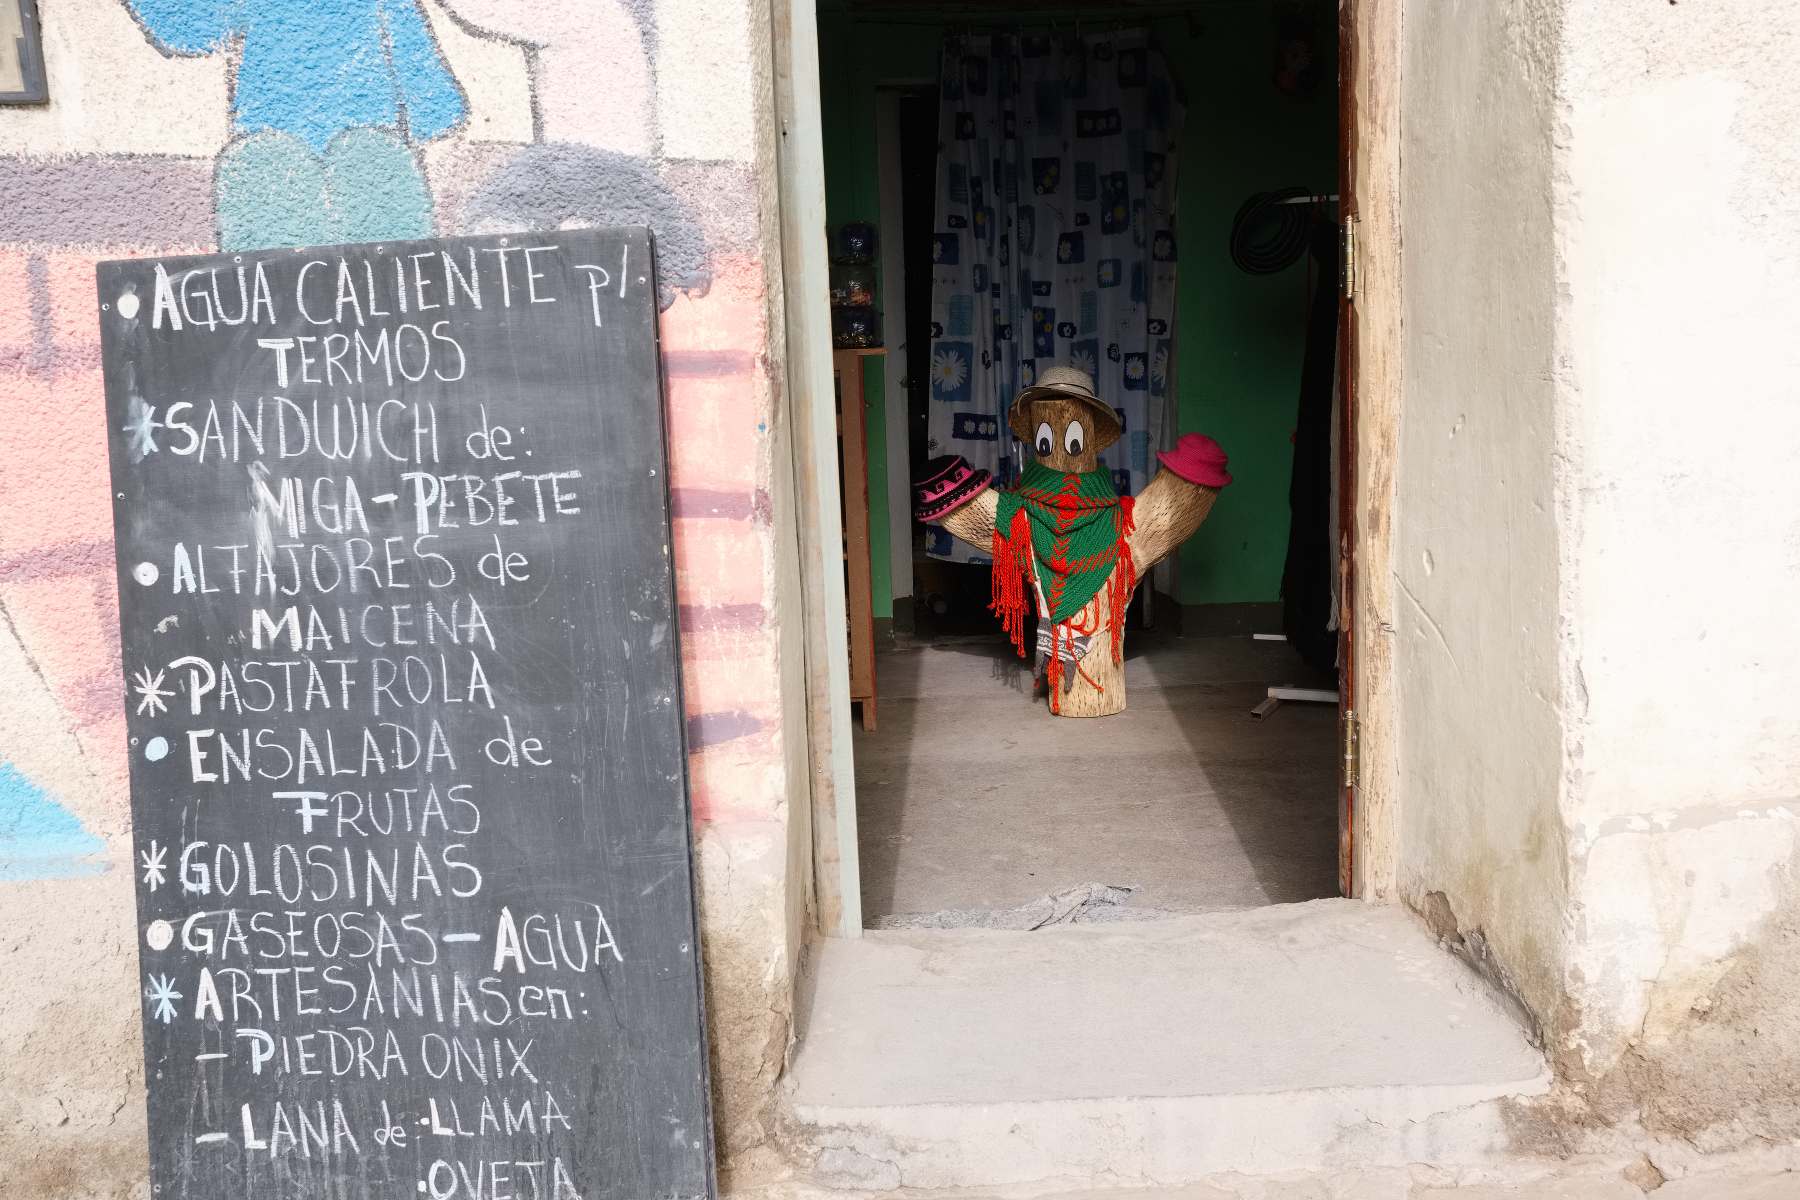 • AGUA CALIENTE p/
TERMOS
* SANDWICH de:
MIGA - PEBETE
• ALFAJORES de
MAICENA
* PASTAFROLA
• ENSALADA de
FRUTAS
* GOLOSINAS
• GASEOSAS - AGUA
* ARTESANIAS en:
- PIEDRA ONIX
- LANA de: • LLAMA
• OVEJA